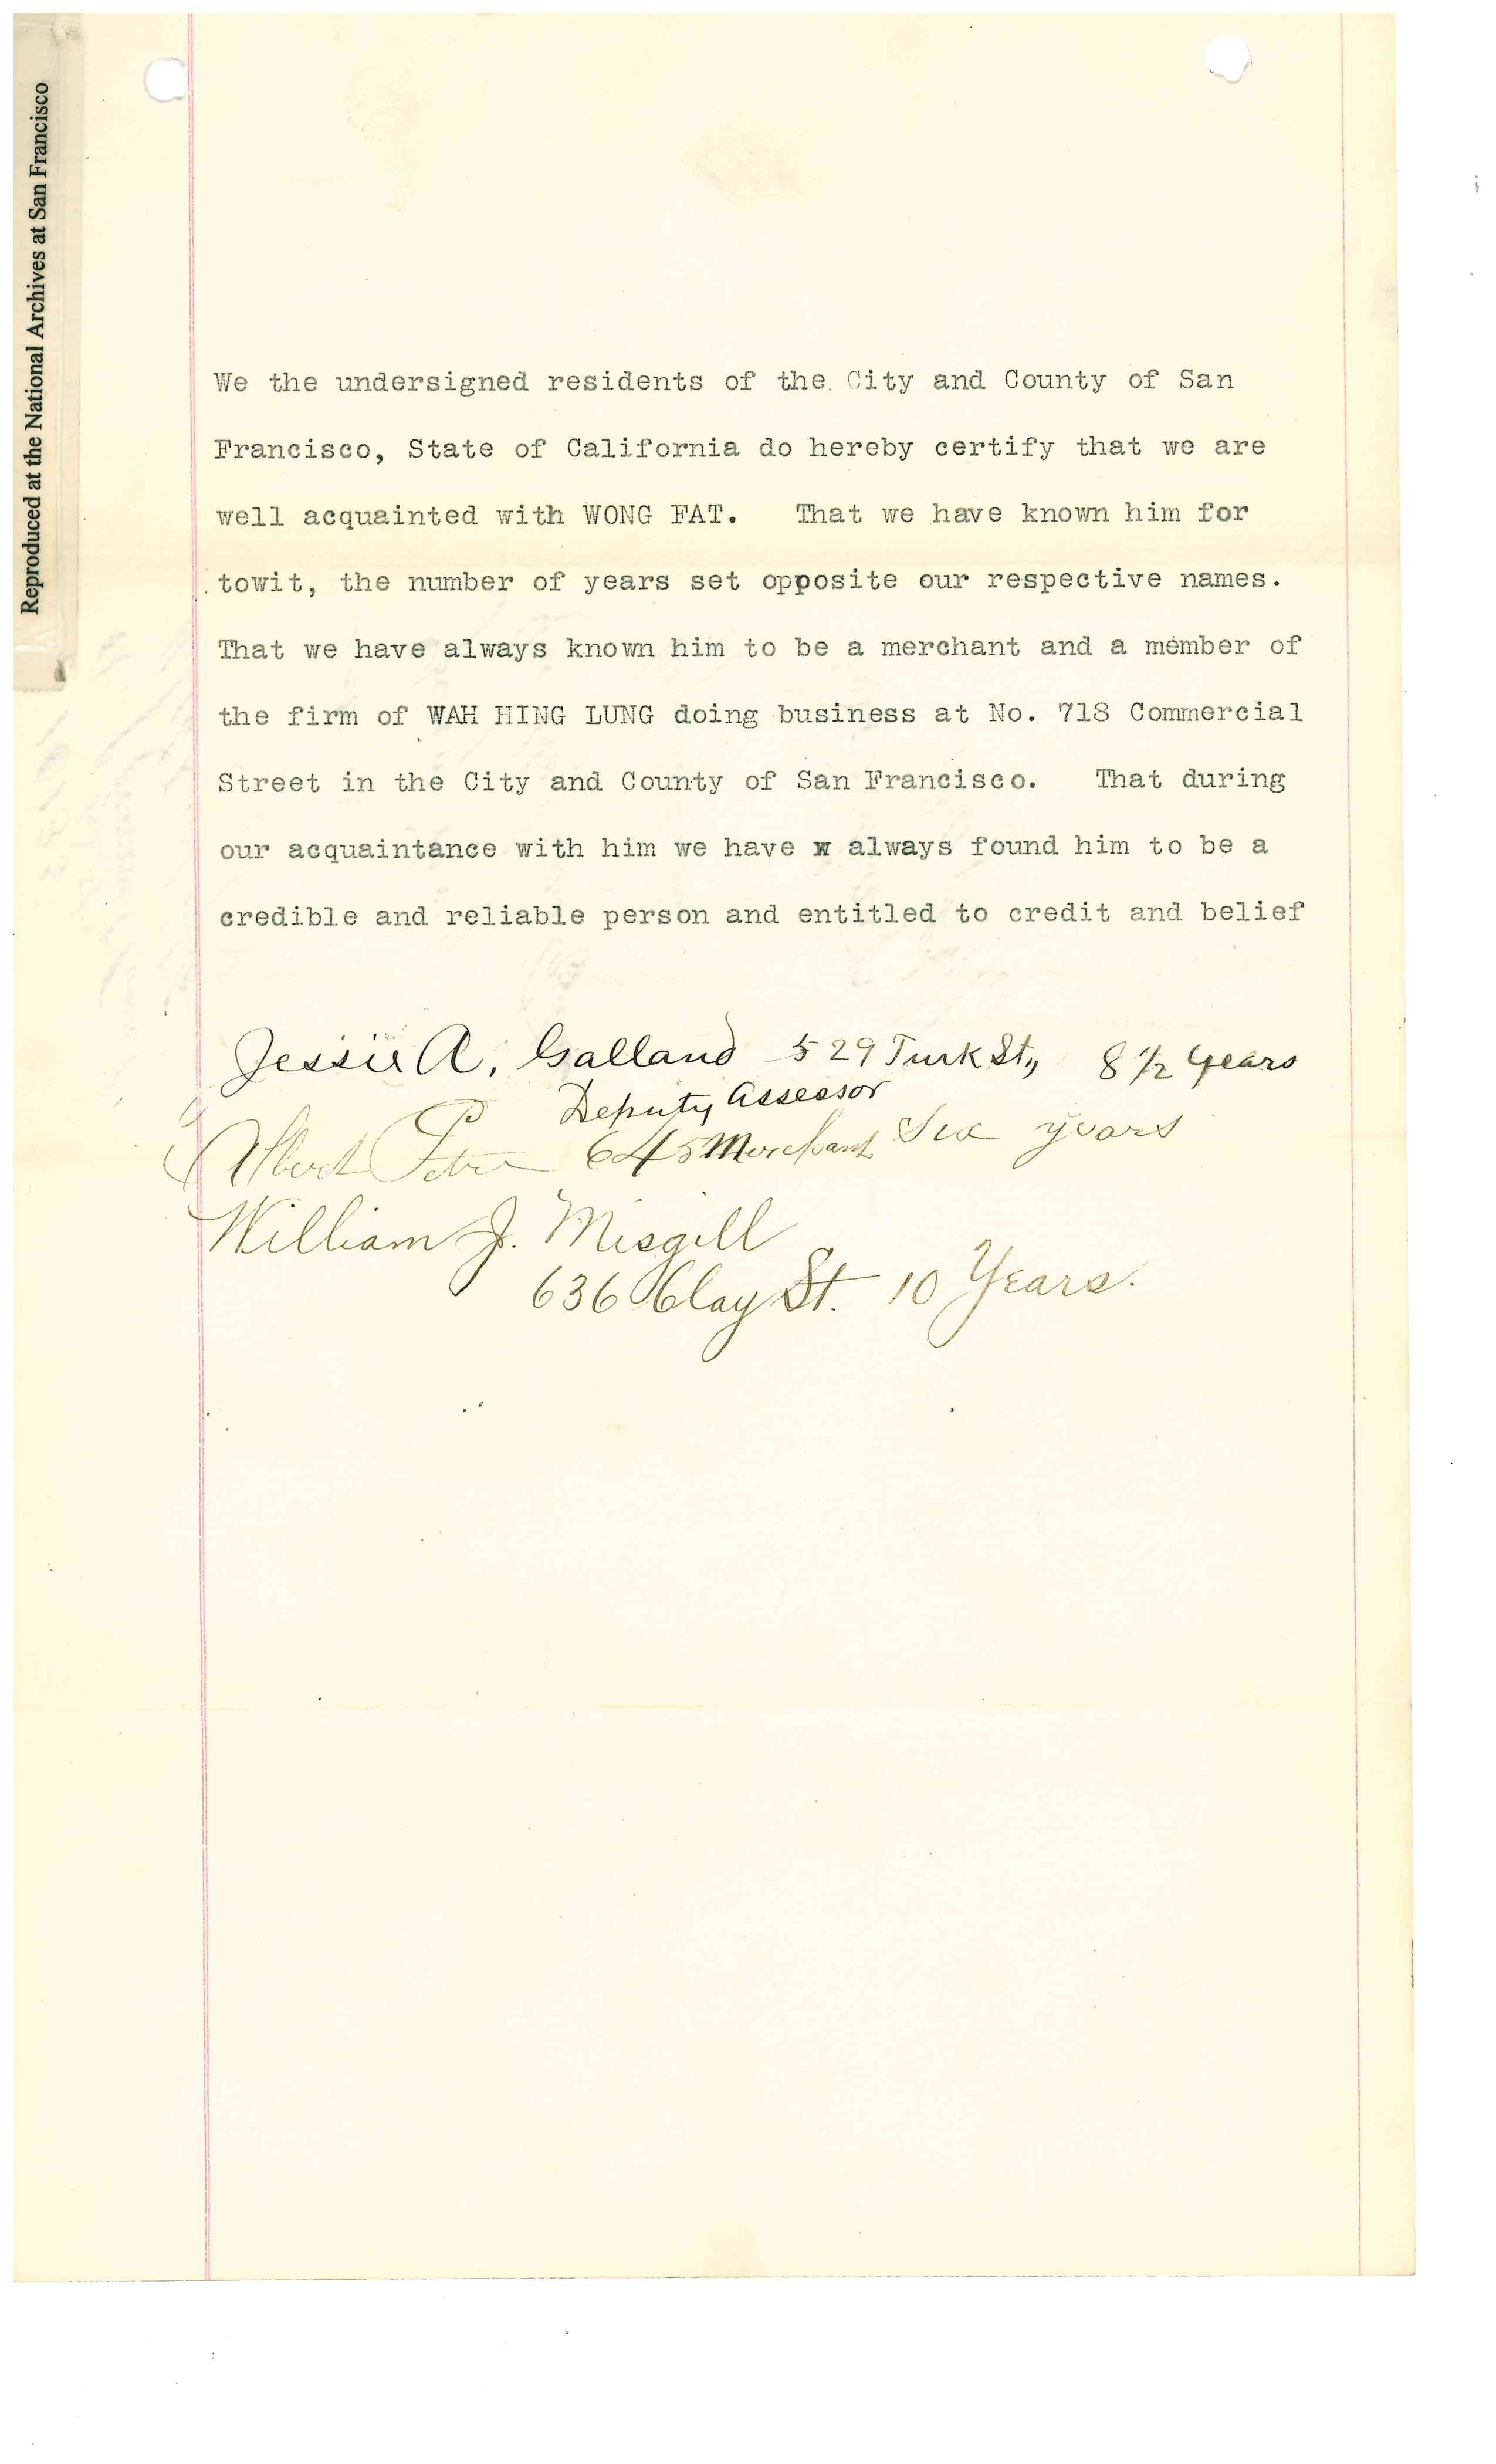 Reproduced at the National Archives at San Francisco
We the undersigned residents of the City and County of San
Francisco, State of California do hereby certify that we are
well acquainted with WONG FAT. That we have known him for
towit, the number of years set opposite our respective names.
That we have always known him to be a merchant and a member of
the firm of WAH HING LUNG doing business at No. 718 Commercial
Street in the City and County of San Francisco. That during
our acquaintance with him we have x always found him to be a
credible and reliable person and entitled to credit and belief
Jessie A. Galland 529 Turk St., 8 1/2 Years
Deputy Assessor
Albert 645 Merchant Six years
William J. Misgill
636 Clay St. 10 Years.